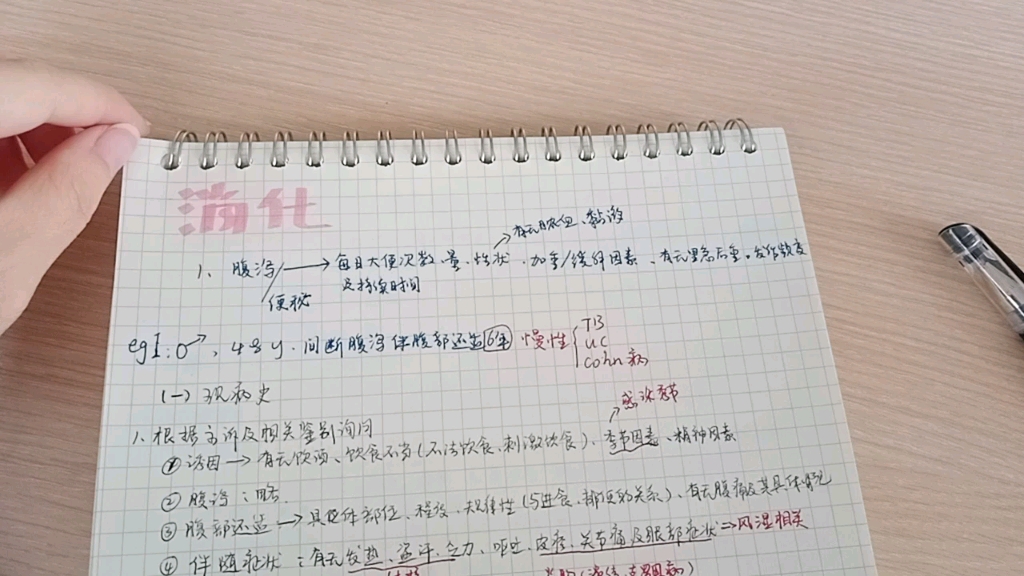 消化
有无脓血、黏液
1、腹泻/便秘 → 每日大便次数、量、性状、加重/缓解因素、有无里急后重、发作频度
及持续时间
eg1:♂, 48y. 间断腹泻伴腹部还尝6年 慢性
TB
UC
Cohn病
(一) 现病史
感染
1、根据主诉及相关鉴别询问
①诱因 → 有无饮酒、饮食不当(不洁饮食、刺激饮食)、季节因素、精神因素
②腹泻:略.
③腹部 → 具体部位、程度、规律性(与进食、排便的关系)、有无腹痛及其具体情况
④伴随症状:有无发热、盗汗、乏力、呕吐、皮疹、关节痛及眼部症状 ⇒ 风湿相关